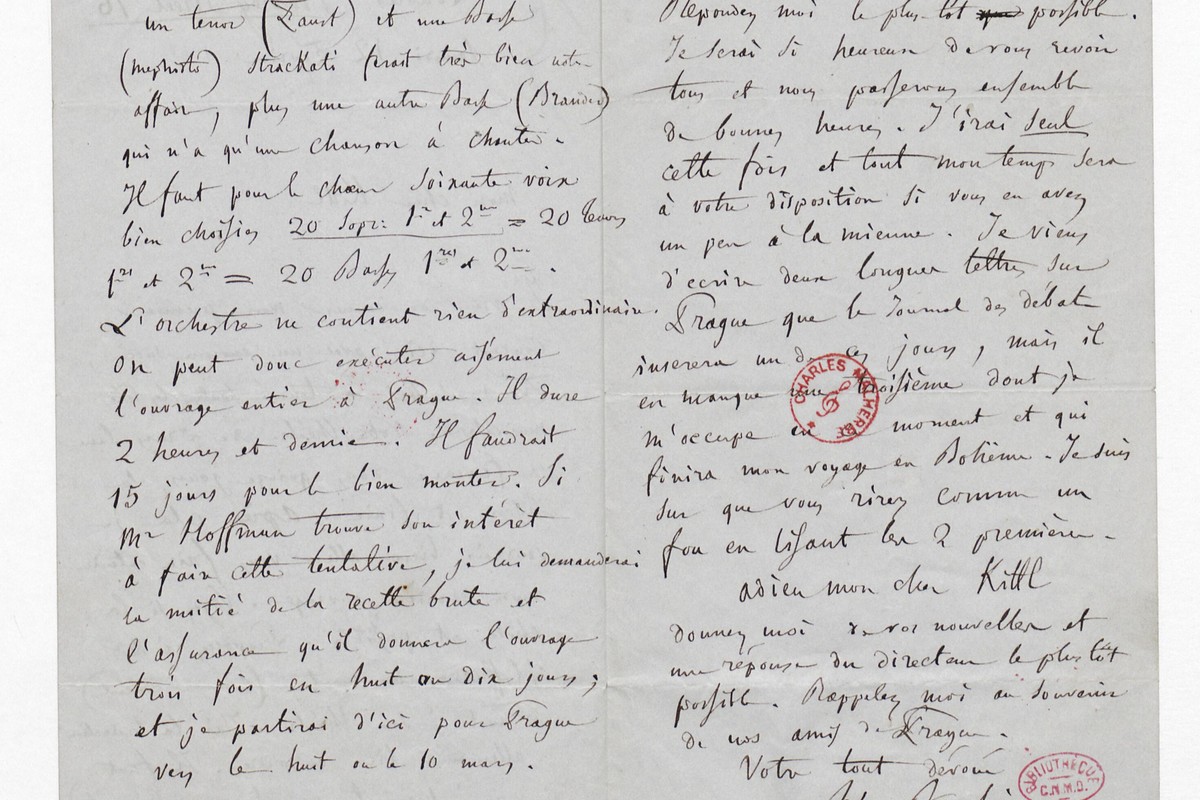 un tenor (Faust) et une Basse
(mephisto) Strackati ferait très bien notre
affaire, plus une autre Basse (Brander)
qui n'a qu'une chanson à chanter.
Il faut pour le chœur soixante voix
bien choisies 20 Sopr: 1er et 2me = 20 tenors
1ers et 2me = 20 Basses 1res et 2me.
L'orchestre ne contient rien d'extraordinaire.
On peut donc exécuter aisément
l'ouvrage entier à Prague. Il dure
2 heures et demie. Il faudrait
15 jours pour le bien monter. Si
Mr Hoffman trouve son intérêt
à faire cette tentative, je lui demanderai
la moitié de la recette brute et
l'assurance qu'il donnera l'ouvrage
trois fois en huit ou dix jours;
et je partirai d'ici pour Prague
vers le huit ou le 10 mars.
Repondez moi le plus tot possible.
Je serai si heureux de vous revoir
tous et nous passerons ensemble
de bonnes heures. J'irai seul
cette fois et tout mon temps sera
à votre disposition si vous en avez
un peu à la mienne. Je viens
d'ecrire deux longues lettres sur
Prague que le Journal des débats
inserera un de ces jours, mais il
en manque une troisième dont je
m'occupe en moment et qui
finira mon voyage en Bohême. Je suis
sur que vous rirez comme un
fou en lisant les 2 premières.
adieu mon cher Kittl
donnez moi de vos nouvelles et
une réponse du directeur le plus tôt
possible. Rappelez moi au souvenir
de nos amis de Prague.
Votre tout dévoué
CHARLES MALHERBE
BIBLIOTHÈQUE
C.N.M.D.